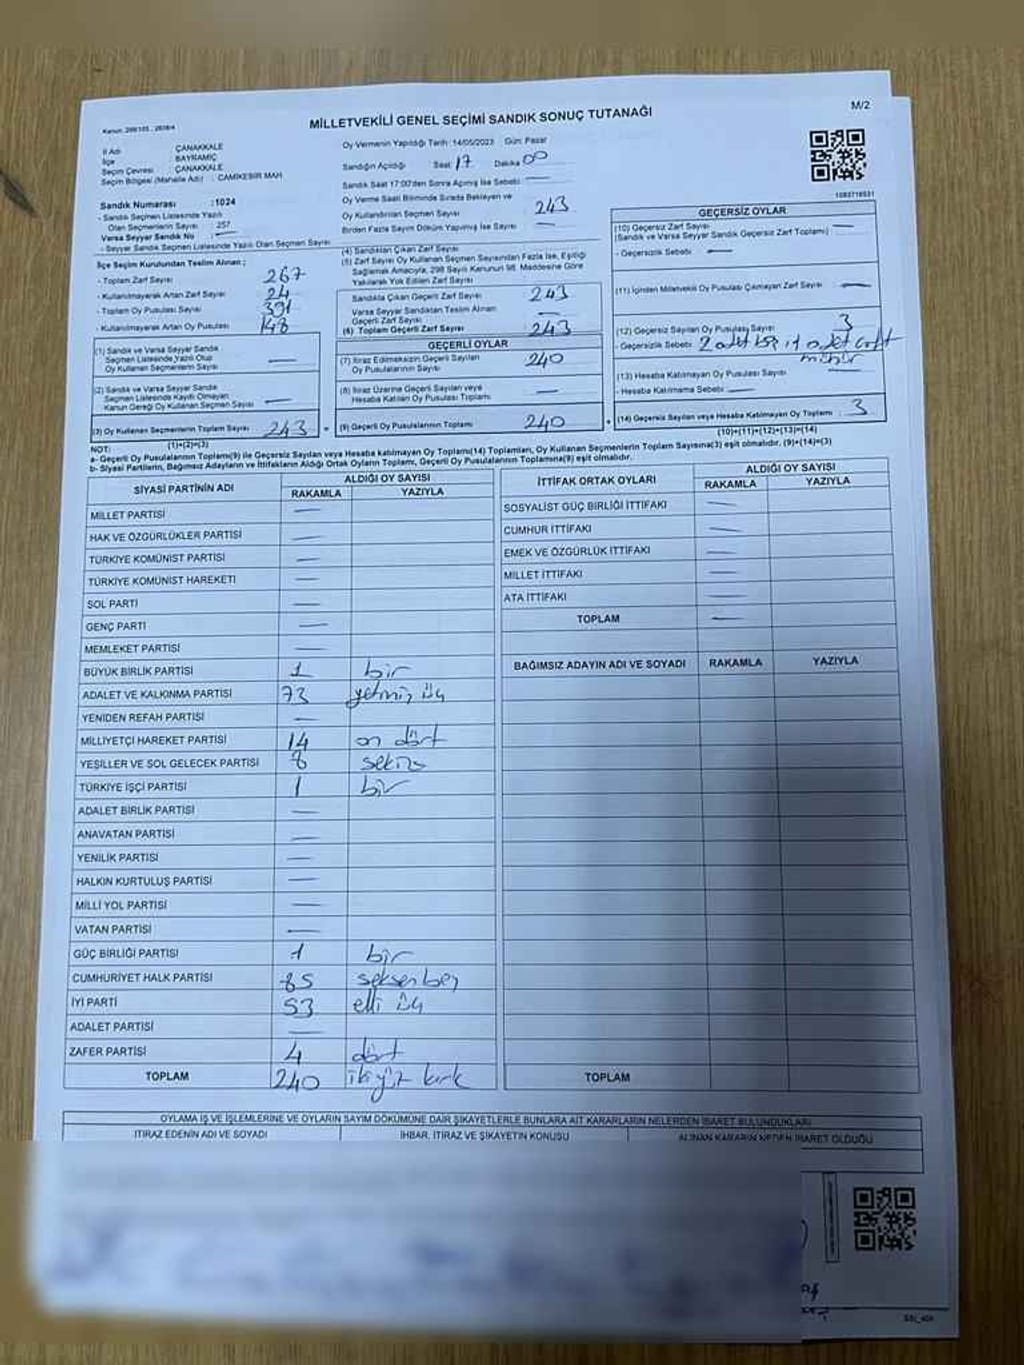 M/2
MİLLETVEKİLİ GENEL SEÇİMİ SANDIK SONUÇ TUTANAĞI
İl Adı : ÇANAKKALE
İlçe : BAYRAMİÇ
Seçim Çevresi : ÇANAKKALE
Seçim Bölgesi (Mahalle Adı) : CAMİKEBİR MAH
Sandık Numarası :1024
- Sandık Seçmen Listesinde Yazılı
Olan Seçmenlerin Sayısı : 257
Varsa Seyyar Sandık No : —
- Seyyar Sandık Seçmen Listesinde Yazılı Olan Seçmen Sayısı
İlçe Seçim Kurulundan Teslim Alınan ;
- Toplam Zarf Sayısı : 267
- Kullanılmayarak Artan Zarf Sayısı : 24
- Toplam Oy Pusulası Sayısı : 391
- Kullanılmayarak Artan Oy Pusulası : 148
(1) Sandık ve Varsa Seyyar Sandık
Seçmen Listesinde Yazılı Olup
Oy Kullanan Seçmenlerin Sayısı —
(2) Sandık ve Varsa Seyyar Sandık
Seçmen Listesinde Kayıtlı Olmayan
Kanun Gereği Oy Kullanan Seçmen Sayısı —
(3) Oy Kullanan Seçmenlerin Toplam Sayısı 243
(1)+(2)=(3)
Oy Vermenin Yapıldığı Tarih :14/05/2023 Gün: Pazar
Sandığın Açıldığı Saat: 17 Dakika 00
Sandık Saat 17:00'den Sonra Açılmış İse Sebebi: —
Oy Verme Saati Bitiminde Sırada Bekleyen ve
Oy Kullandırılan Seçmen Sayısı 243
Birden Fazla Sayım Döküm Yapılmış İse Sayısı —
(4) Sandıktan Çıkan Zarf Sayısı
(5) Zarf Sayısı Oy Kullanan Seçmen Sayısından Fazla İse, Eşitliği
Sağlamak Amacıyla, 298 Sayılı Kanunun 98. Maddesine Göre
Yakılarak Yok Edilen Zarf Sayısı
Sandıkta Çıkan Geçerli Zarf Sayısı 243
Varsa Seyyar Sandıktan Teslim Alınan
Geçerli Zarf Sayısı —
(6) Toplam Geçerli Zarf Sayısı 243
GEÇERLİ OYLAR
(7) İtiraz Edilmeksizin Geçerli Sayılan
Oy Pusulalarının Sayısı 240
(8) İtiraz Üzerine Geçerli Sayılan veya
Hesaba Katılan Oy Pusulası Toplamı —
(9) Geçerli Oy Pusulalarının Toplamı 240
GEÇERSİZ OYLAR
(10) Geçersiz Zarf Sayısı —
(Sandık ve Varsa Seyyar Sandık Geçersiz Zarf Toplamı)
- Geçersizlik Sebebi: —
(11) İçinden Milletvekili Oy Pusulası Çıkmayan Zarf Sayısı —
(12) Geçersiz Sayılan Oy Pusulası Sayısı 3
- Geçersizlik Sebebi: 2 adet adet çift
mühür
(13) Hesaba Katılmayan Oy Pusulası Sayısı —
- Hesaba Katılmama Sebebi: —
(14) Geçersiz Sayılan veya Hesaba Katılmayan Oy Toplamı 3
(10)+(11)+(12)+(13)=(14)
NOT:
a- Geçerli Oy Pusulaları Toplamı(9) ile Geçersiz Sayılan veya Hesaba katılmayan Oy Toplamı(14) Toplamları, Oy Kullanan Seçmenlerin Toplam Sayısına(3) eşit olmalıdır. (9)+(14)=(3)
b- Siyasi Partilerin, Bağımsız Adayların ve İttifakların Aldığı Ortak Oyların Toplamı, Geçerli Oy Pusulalarının Toplamına(9) eşit olmalıdır.
SİYASİ PARTİNİN ADI ALDIĞI OY SAYISI
RAKAMLA YAZIYLA
MİLLET PARTİSİ —
HAK VE ÖZGÜRLÜKLER PARTİSİ —
TÜRKİYE KOMÜNİST PARTİSİ —
TÜRKİYE KOMÜNİST HAREKETİ —
SOL PARTİ —
GENÇ PARTİ —
MEMLEKET PARTİSİ —
BÜYÜK BİRLİK PARTİSİ 1 bir
ADALET VE KALKINMA PARTİSİ 73 yetmiş üç
YENİDEN REFAH PARTİSİ —
MİLLİYETÇİ HAREKET PARTİSİ 14 on dört
YEŞİLLER VE SOL GELECEK PARTİSİ 8 sekiz
TÜRKİYE İŞÇİ PARTİSİ 1 bir
ADALET BİRLİK PARTİSİ —
ANAVATAN PARTİSİ —
YENİLİK PARTİSİ —
HALKIN KURTULUŞ PARTİSİ —
MİLLİ YOL PARTİSİ —
VATAN PARTİSİ —
GÜÇ BİRLİĞİ PARTİSİ 1 bir
CUMHURİYET HALK PARTİSİ 85 seksen beş
İYİ PARTİ 53 elli üç
ADALET PARTİSİ —
ZAFER PARTİSİ 4 dört
TOPLAM 240 iki yüz kırk
İTTİFAK ORTAK OYLARI ALDIĞI OY SAYISI
RAKAMLA YAZIYLA
SOSYALİST GÜÇ BİRLİĞİ İTTİFAKI —
CUMHUR İTTİFAKI —
EMEK VE ÖZGÜRLÜK İTTİFAKI —
MİLLET İTTİFAKI —
ATA İTTİFAKI —
TOPLAM —
BAĞIMSIZ ADAYIN ADI VE SOYADI RAKAMLA YAZIYLA
TOPLAM
OYLAMA İŞ VE İŞLEMLERİNE VE OYLARIN SAYIM DÖKÜMÜNE DAİR ŞİKAYETLERLE BUNLARA AİT KARARLARIN NELERDEN İBARET BULUNDUKLARI
İTİRAZ EDENİN ADI VE SOYADI İHBAR, İTİRAZ VE ŞİKAYETİN KONUSU ALINAN KARARIN NEDEN İBARET OLDUĞU